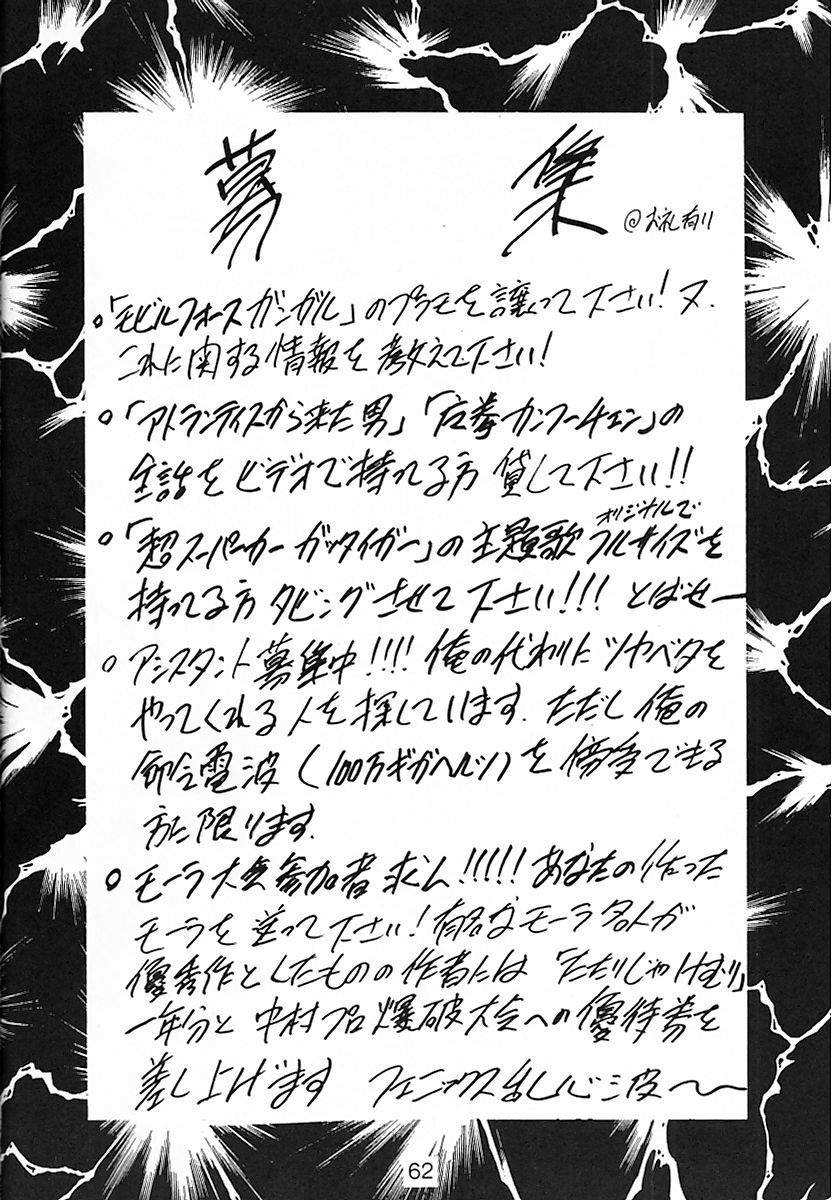 募集 @お礼有り
○「モビルフォースガンガル」のプラモを譲って下さい!又、
これに関する情報を教えて下さい!
○「アトランティスから来た男」「右拳カンフーチェン」の
全話をビデオで持ってる方 貸して下さい!!
○「超スーパーカーガッタイガー」の主題歌オリジナルでフルサイズを
持ってる方 ダビングさせて下さい!!! とばせー
○アシスタント募集中!!!! 俺の代わりにツヤベタを
やってくれる人を探しています.ただし俺の
命令電波(100万ギガヘルツ)を傍受できる
方に限ります.
○モーラ大会参加者求ム!!!!! あなたの作った
モーラを送って下さい!有名なモーラ名人が
優秀作としたものの作者には「たたりじゃけむり」
一年分と 中村プロ爆破大会への優待券を
差し上げます フェニックス乱心波〜〜
62